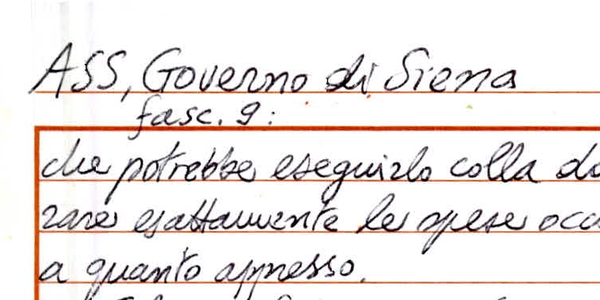 ASS, Governo di Siena
fasc. 9:
che potrebbe eseguirlo colla
zare esattamente le spese
a quanto appresso.